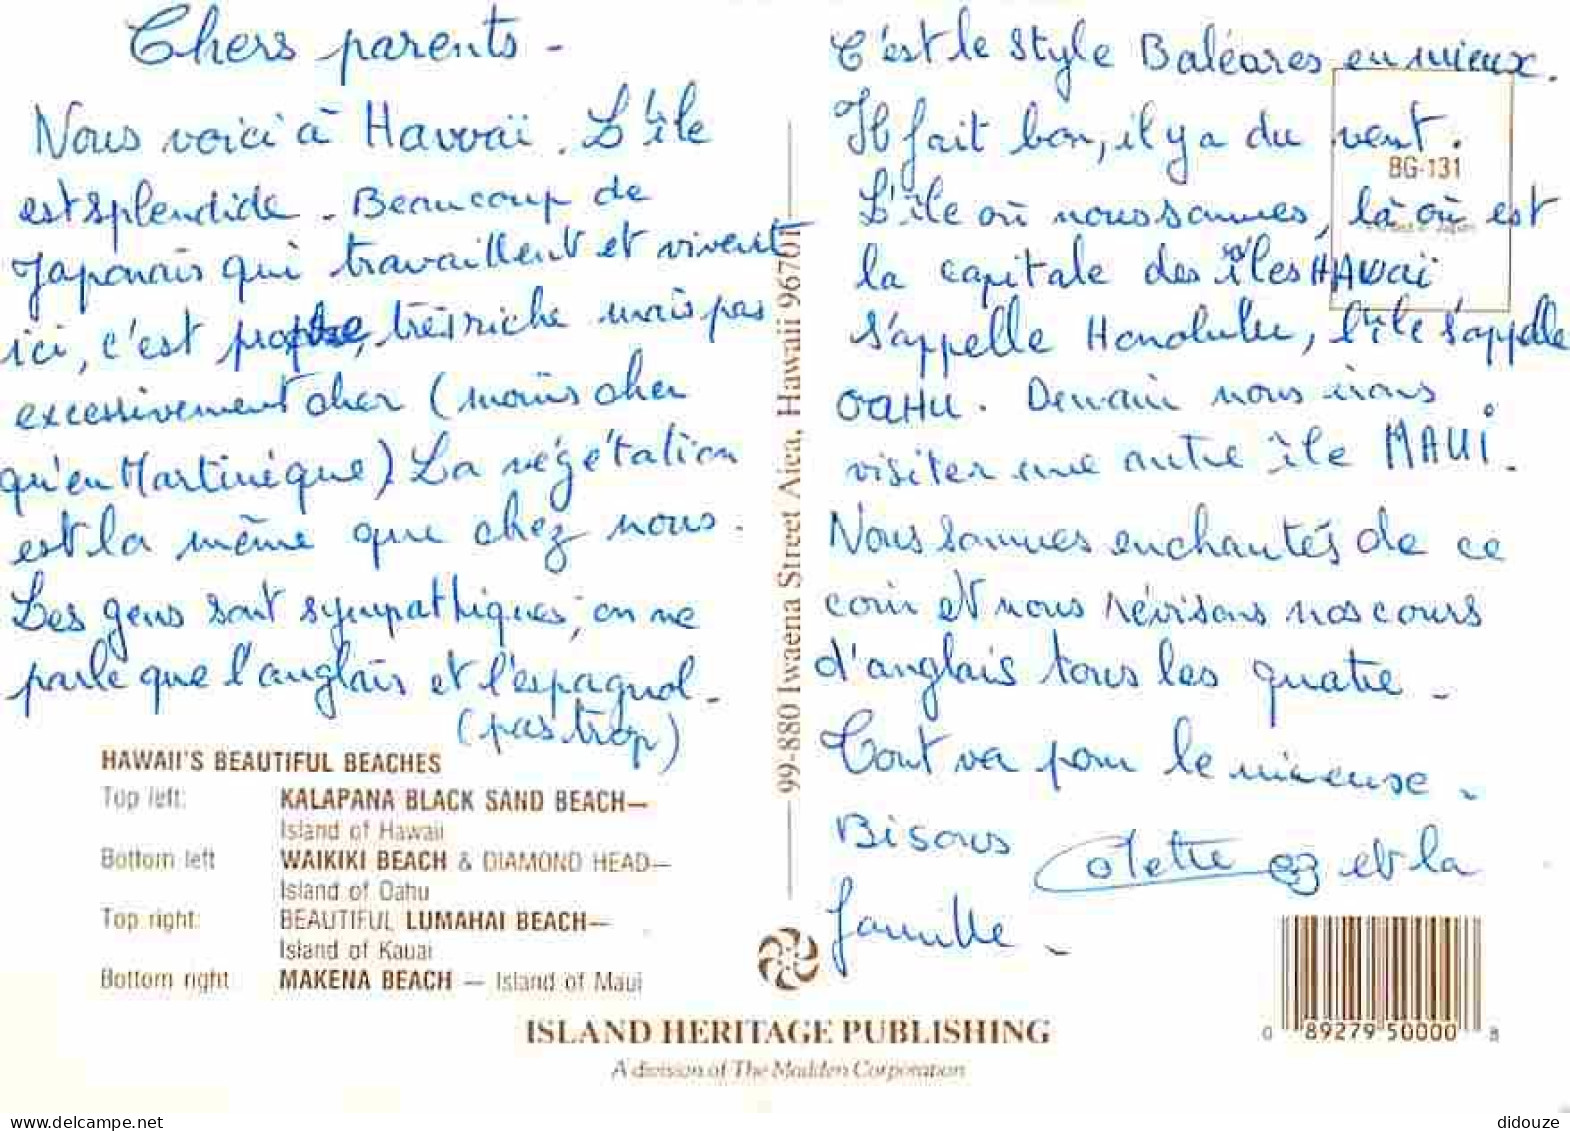 Chers parents -
Nous voici à Hawaï. L'île
est splendide. Beaucoup de
Japonais qui travaillent et vivent
ici, c'est propre, très riche mais pas
excessivement cher (moins cher
qu'en Martinique) La végétation
est la même que chez nous.
Les gens sont sympathiques, on ne
parle que l'anglais et l'espagnol -
(pas trop)
HAWAII'S BEAUTIFUL BEACHES
Top left: KALAPANA BLACK SAND BEACH—
Island of Hawaii
Bottom left WAIKIKI BEACH & DIAMOND HEAD—
Island of Oahu
Top right: BEAUTIFUL LUMAHAI BEACH—
Island of Kauai
Bottom right MAKENA BEACH — Island of Maui
99-880 Iwaena Street Aiea, Hawaii 96701
C'est le style Baléares en mieux.
Il fait bon, il y a du vent.
BG-131
L'île où nous sommes, là où est
la capitale des îles HAWAï
s'appelle Honolulu, l'île s'appelle
OAHU. Demain nous irons
visiter une autre île MAUI.
Nous sommes enchantés de ce
coin et nous révisons nos cours
d'anglais tous les quatre -
Tout va pour le mieux -
Bisous Colette et la
famille -
ISLAND HERITAGE PUBLISHING
A division of The Madden Corporation
0 89279 50000 8
delcampe.net
didouze